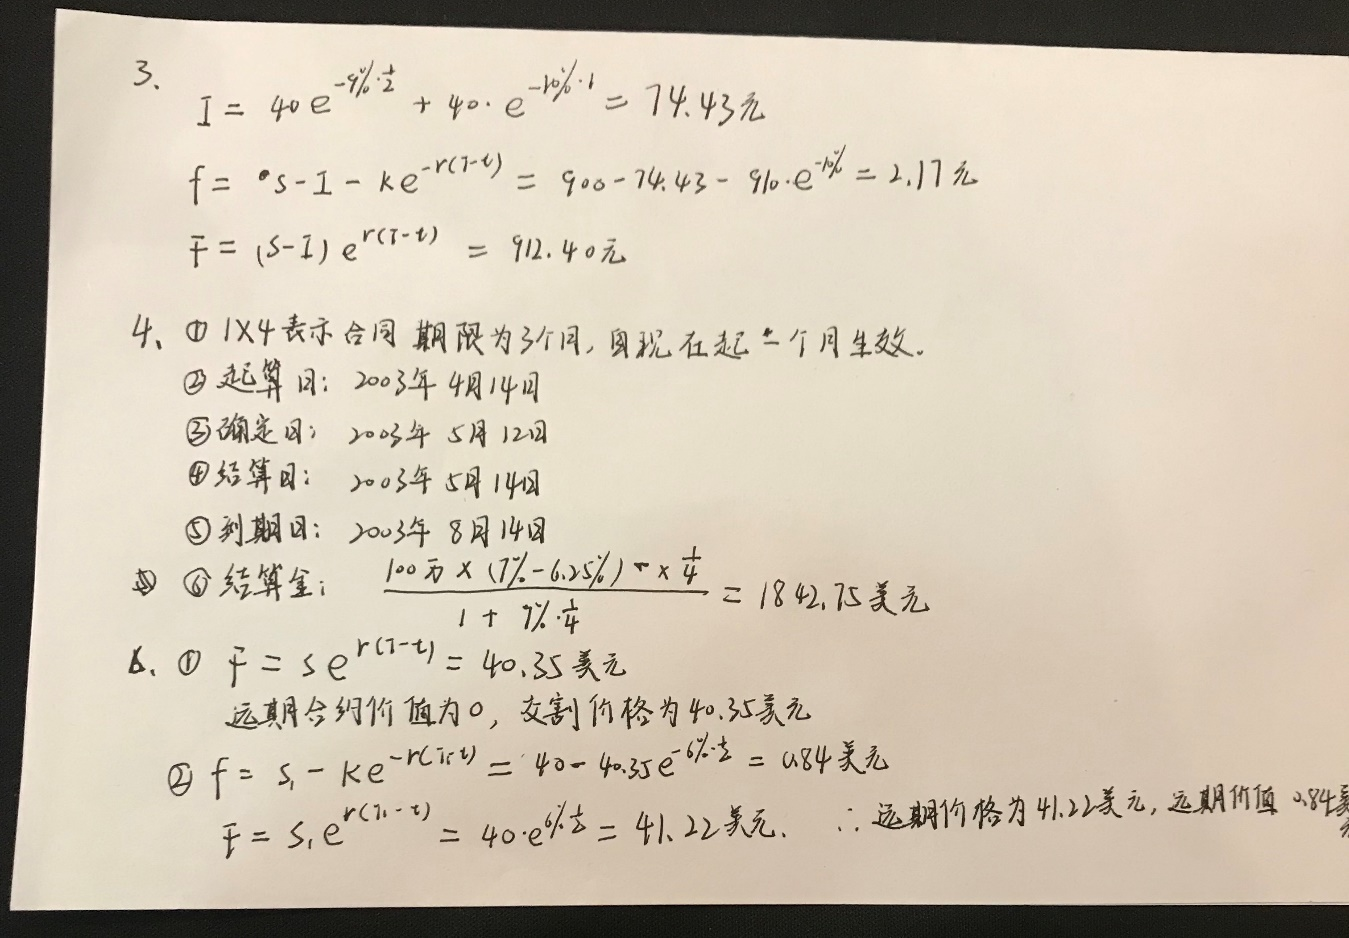 3、
I = 40e^{-9%·\frac{1}{2}} + 40·e^{-10%·1} = 74.43元
f = S-I-Ke^{-r(T-t)} = 900-74.43-910·e^{-10%} = 2.17元
F = (S-I)e^{r(T-t)} = 912.40元
4、① 1X4表示合同期限为3个月,自现在起一个月生效.
② 起算日: 2003年4月14日
③ 确定日: 2003年5月12日
④ 结算日: 2003年5月14日
⑤ 到期日: 2003年8月14日
⑥ 结算金: \frac{100万×(7%-6.25%)×\frac{1}{4}}{1+7%·\frac{1}{4}} = 1842.75美元
6、① F = Se^{r(T-t)} = 40.35美元
远期合约价值为0, 交割价格为40.35美元
② f = S₁-Ke^{-r(T₁-t)} = 40-40.35e^{-6%·\frac{1}{2}} = 0.84美元
F = S₁e^{r(T₁-t)} = 40·e^{6%·\frac{1}{2}} = 41.22美元. ∴远期价格为41.22美元, 远期价值0.84美元